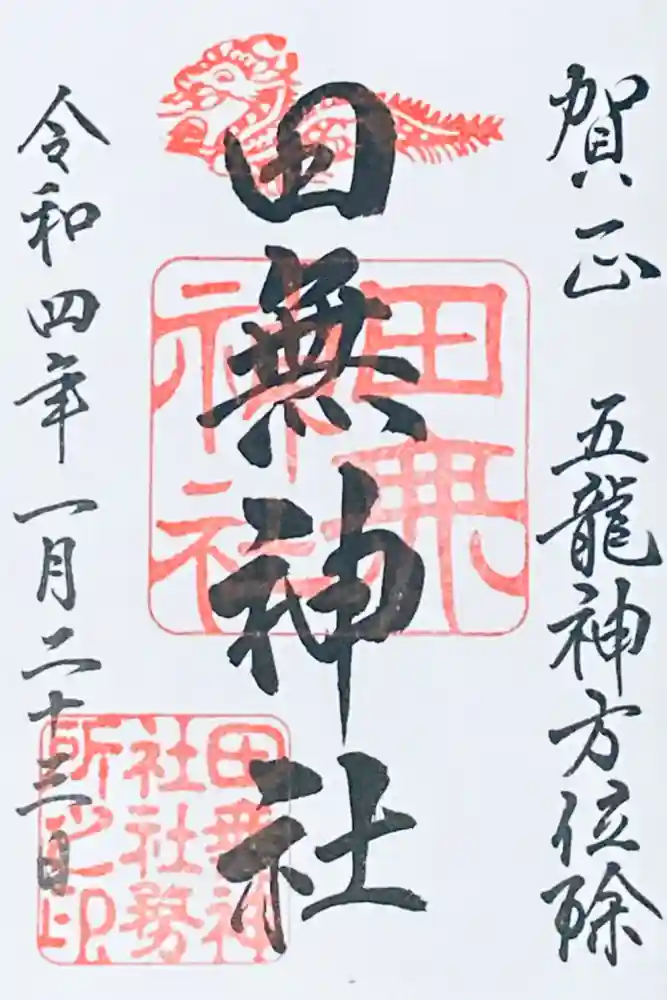 賀正 五龍神方位除
田無神社
令和四年一月二十三日
田無
神社
田無神
社社務
所之印